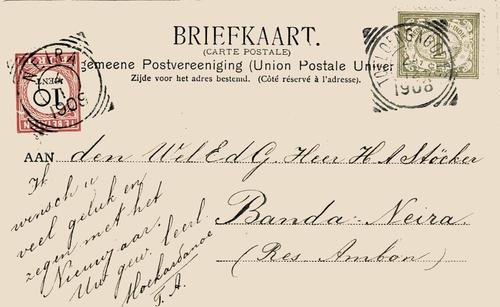 BRIEFKAART.
(CARTE POSTALE)
gemeene Postvereeniging (Union Postale Univer
Zijde voor het adres bestemd. (Côté réservé à l'adresse).
NEIRA
1909
10
CENT
TE BETALEN
1908
AAN den Wel Ed G. Heer H A Stöcker
Banda-Neira.
(Res Ambon)
Ik
wensch u
veel geluk en
zegen met het
Nieuwjaar.
Uw gew. leerl.
F. A.